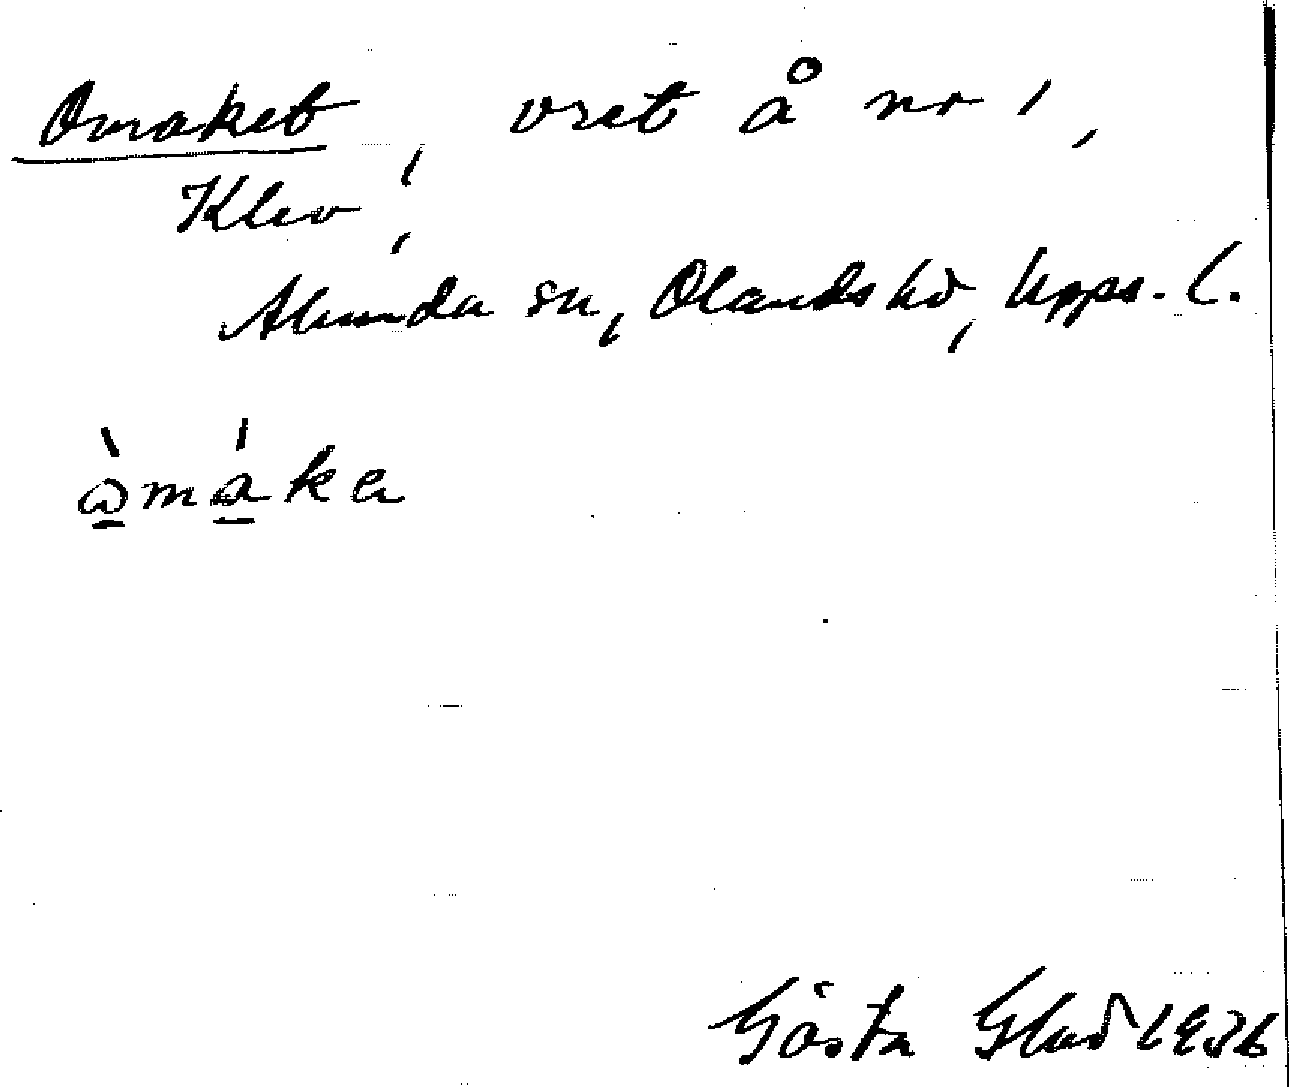 Omaket, vret å nr 1,
Klev,
Alunda sn, Olands hd, Upps. l.
òmáka
Gösta Glad 1936